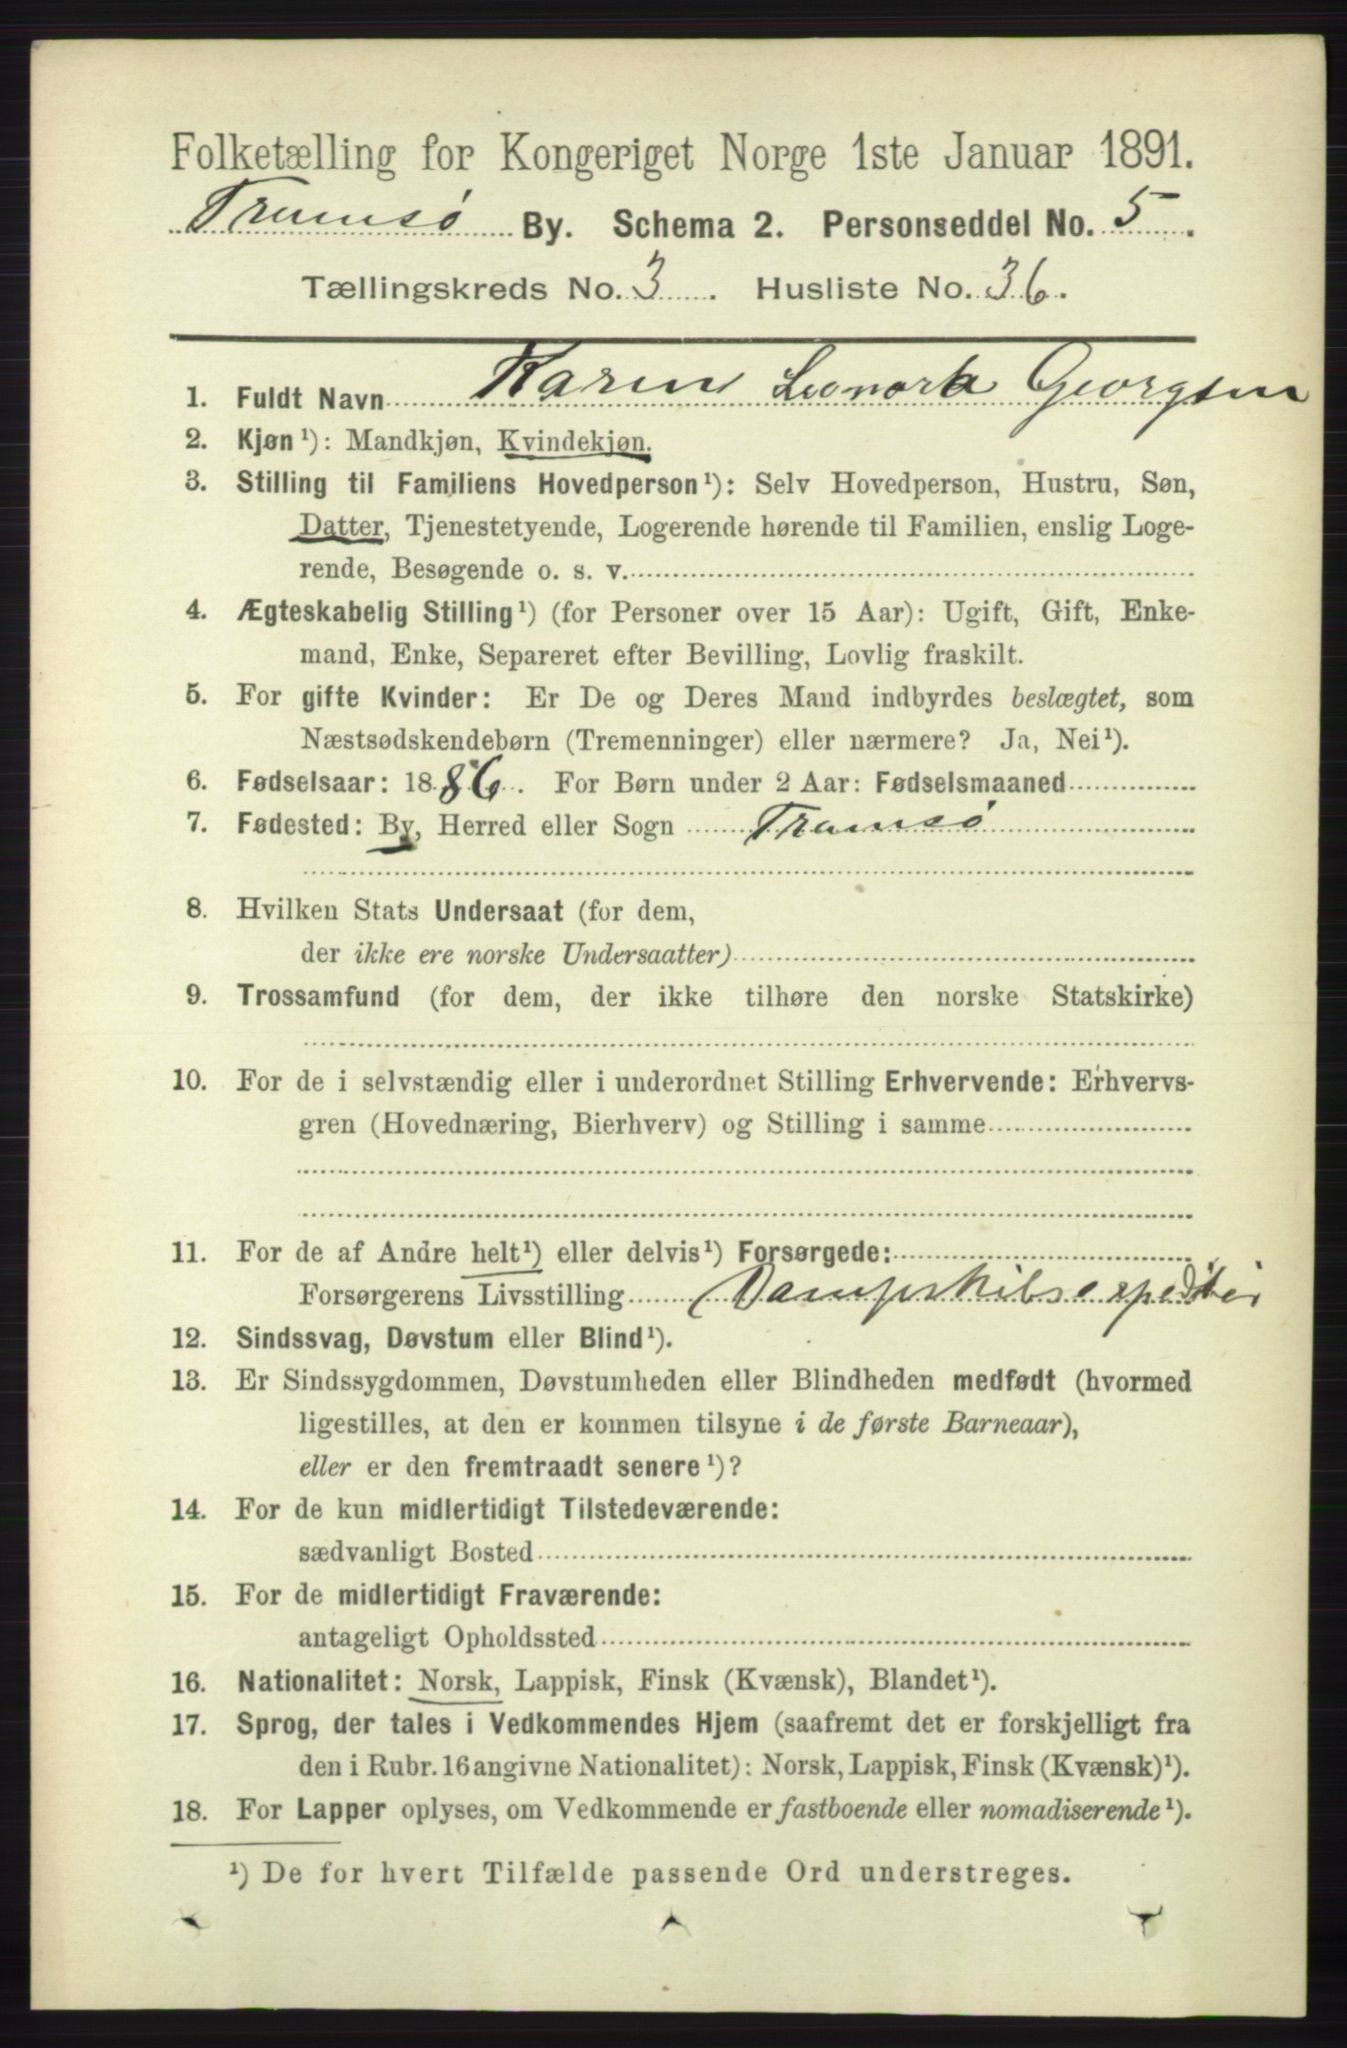 Folketælling for Kongeriget Norge 1ste Januar 1891.
Tromsø By. Schema 2. Personseddel No. 5.
Tællingskreds No. 3. Husliste No. 36.
1. Fuldt Navn Karen Leonora Georgsen
2. Kjøn¹): Mandkjøn, Kvindekjøn.
3. Stilling til Familiens Hovedperson¹): Selv Hovedperson, Hustru, Søn,
Datter, Tjenestetyende, Logerende hørende til Familien, enslig Loge-
rende, Besøgende o. s. v.
4. Ægteskabelig Stilling¹) (for Personer over 15 Aar): Ugift, Gift, Enke-
mand, Enke, Separeret efter Bevilling, Lovlig fraskilt.
5. For gifte Kvinder: Er De og Deres Mand indbyrdes beslægtet, som
Næstsødskendebørn (Tremenninger) eller nærmere? Ja, Nei¹).
6. Fødselsaar: 1886. For Børn under 2 Aar: Fødselsmaaned
7. Fødested: By, Herred eller Sogn Tromsø
8. Hvilken Stats Undersaat (for dem,
der ikke ere norske Undersaatter)
9. Trossamfund (for dem, der ikke tilhøre den norske Statskirke)
10. For de i selvstændig eller i underordnet Stilling Erhvervende: Erhvervs-
gren (Hovednæring, Bierhverv) og Stilling i samme
11. For de af Andre helt¹) eller delvis¹) Forsørgede:
Forsørgerens Livsstilling Dampskibsexpeditør
12. Sindssvag, Døvstum eller Blind¹).
13. Er Sindssygdommen, Døvstumheden eller Blindheden medfødt (hvormed
ligestilles, at den er kommen tilsyne i de første Barneaar),
eller er den fremtraadt senere¹)?
14. For de kun midlertidigt Tilstedeværende:
sædvanligt Bosted
15. For de midlertidigt Fraværende:
antageligt Opholdssted
16. Nationalitet: Norsk, Lappisk, Finsk (Kvænsk), Blandet¹).
17. Sprog, der tales i Vedkommendes Hjem (saafremt det er forskjelligt fra
den i Rubr. 16 angivne Nationalitet): Norsk, Lappisk, Finsk (Kvænsk)¹).
18. For Lapper oplyses, om Vedkommende er fastboende eller nomadiserende¹).
¹) De for hvert Tilfælde passende Ord understreges.